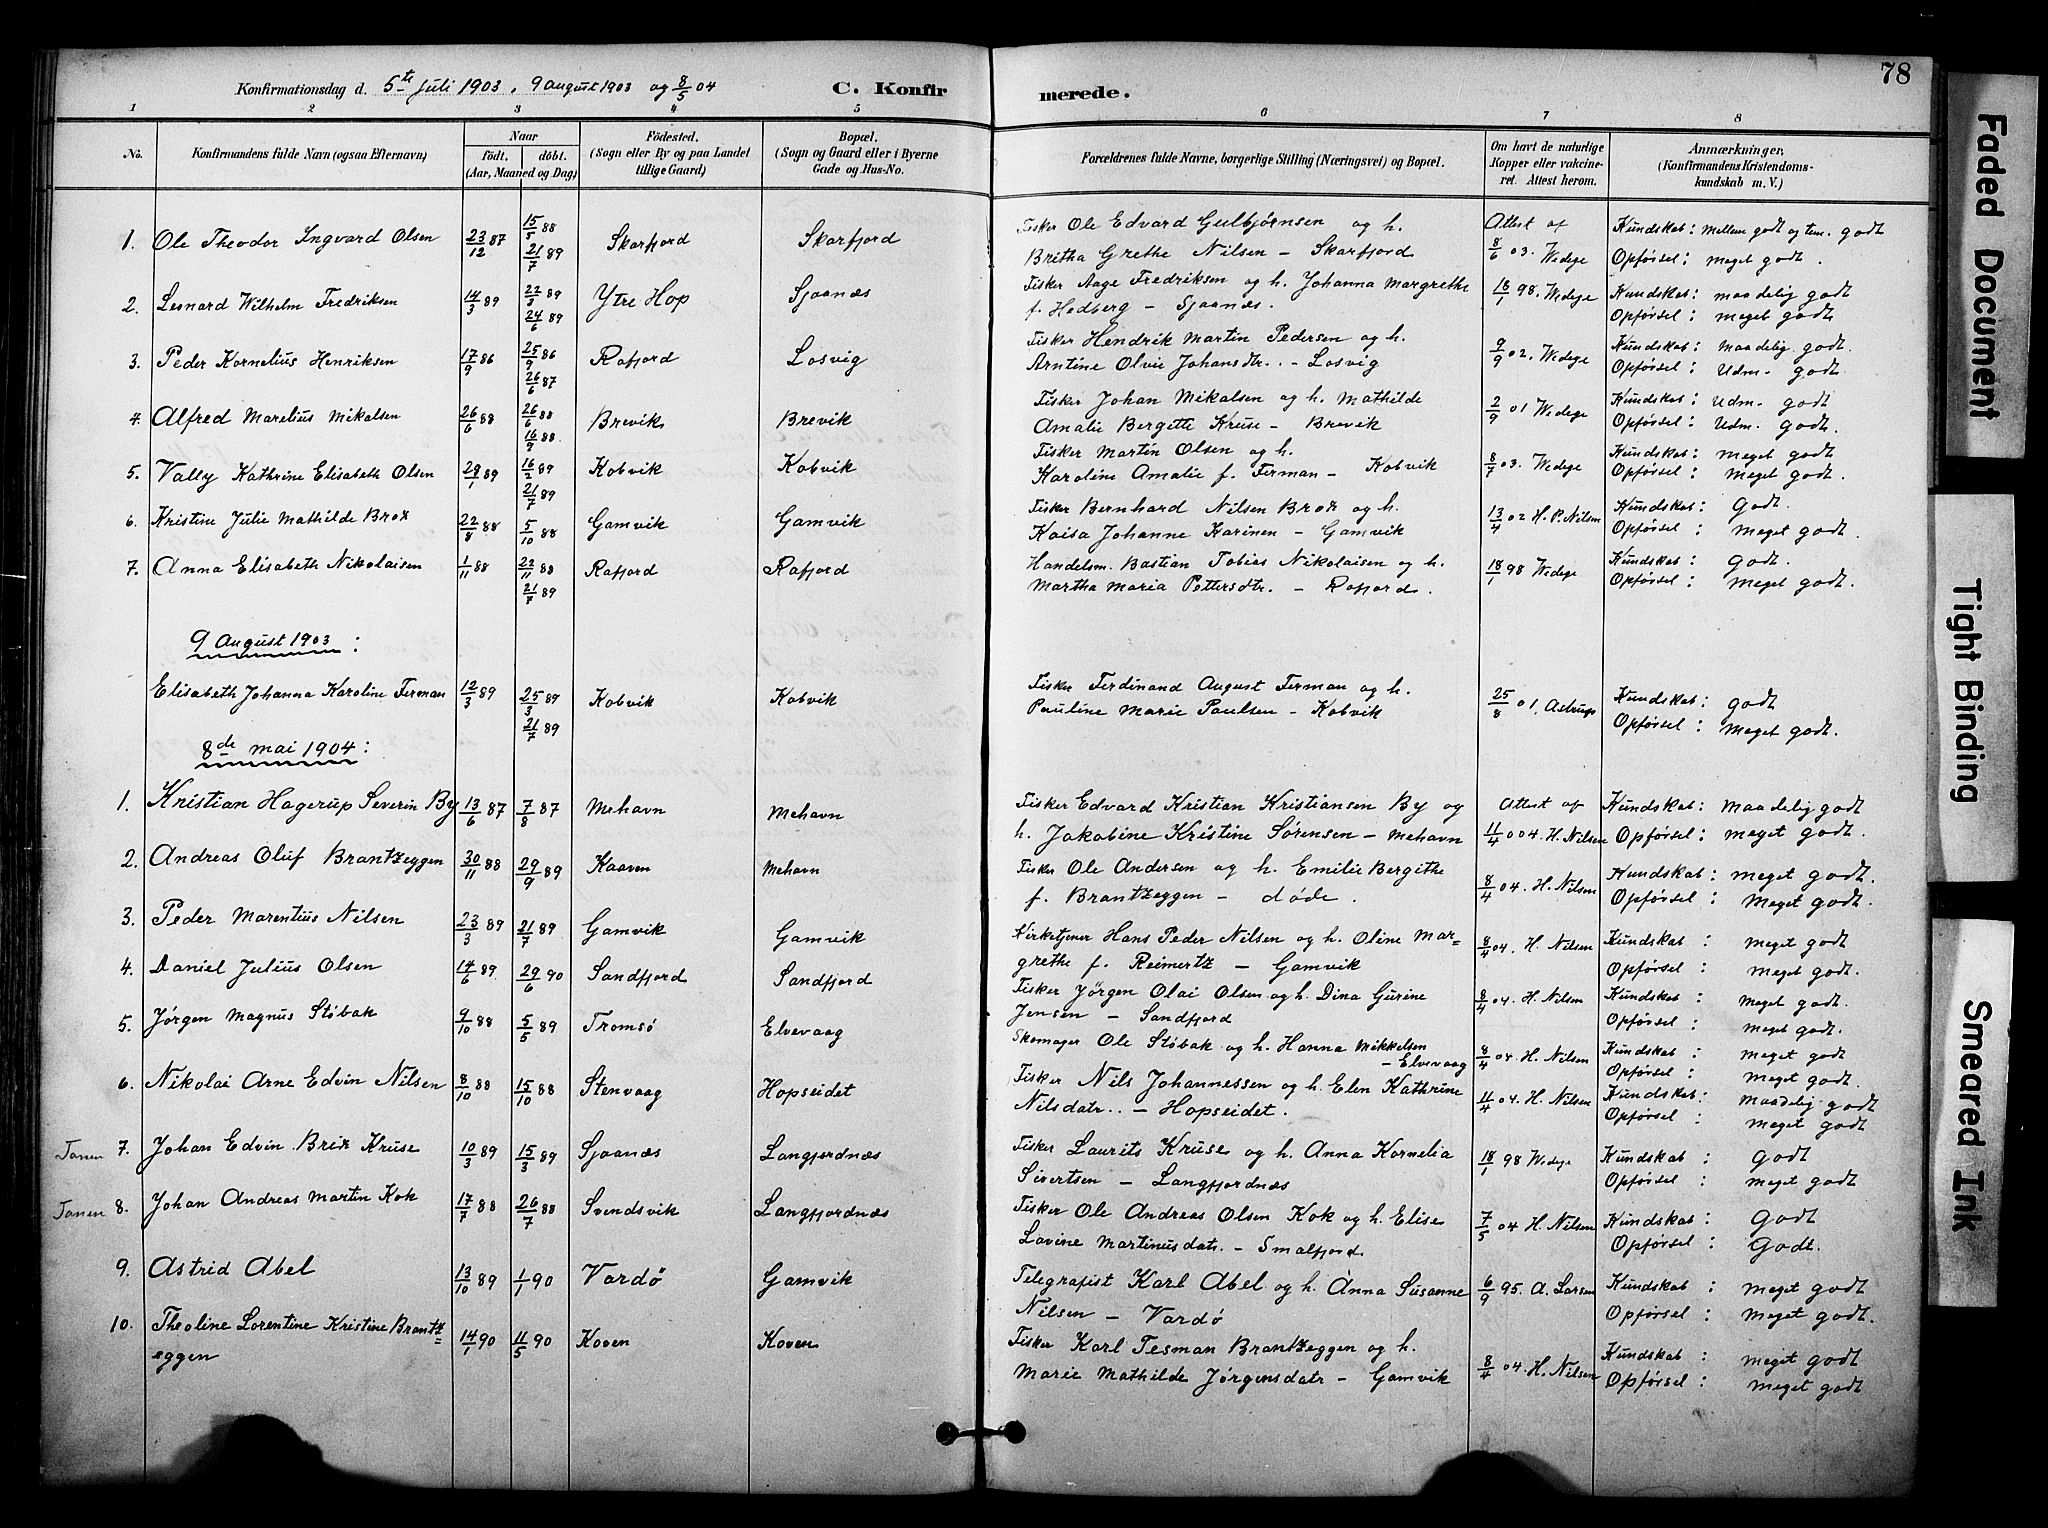 78
Konfirmationsdag d. 5te Juli 1903, 9 august 1903 og 8/5 04 C. Konfirmerede.
1 2 3 4 5 6 7 8
No. Konfirmandens fulde Navn (ogsaa Efternavn) Naar födt. döbt. (Aar, Maaned og Dag) Födested. (Sogn eller By og paa Landet tillige Gaard) Bopæl. (Sogn og Gaard eller i Byerne Gade og Hus-No. Forældrenes fulde Navne, borgerlige Stilling (Næringsvei) og Bopæl. Om havt de naturlige Kopper eller vakcineret. Attest herom. Anmærkninger, (Konfirmandens Kristendomskundskab m. V.)
1. Ole Theodor Ingvard Olsen 23/12 87 15/5 88 21/7 89 Skarfjord Skarfjord Fisker Ole Edvard Gulbjørnsen og h. Attest af Kundskab: mellem godt og tem. godt
Britha Grethe Nilsen – Skarfjord 8/6 03. Wedege Opførsel: meget godt.
2. Leonard Wilhelm Fredriksen 14/3 89 24/6 89 Ytre Hop Sjaanæs Fisker Aage Fredriksen og h. Johanna Margrethe 18/1 98. Wedege Kundskab: maadelig godt
f. Hedberg – Sjaanæs. Opførsel: meget godt
3. Peder Kornelius Henriksen 17/9 86 25/9 86 26/6 87 Rafjord Losvig Fisker Hendrik Martin Pedersen og h. 9/9 02. Wedege Kundskab: maadelig godt.
Arntine Olvie Johansdtr. – Losvig Opførsel: Udm. godt
4. Alfred Marelius Mikalsen 26/6 88 26/6 88 16/9 88. Brevik Brevik Fisker Johan Mikalsen og h. Mathilde 2/9 01 Wedege Kundskab: Udm. godt
Amalie Bergette Kruse – Brevik Opførsel: Udm. godt.
5. Vally Kathrine Elisabeth Olsen 29/1 89 16/2 89 21/7 89 Kobvik Kobvik Fisker Martin Olsen og h. 8/7 03. Wedege Kundskab: meget godt
Karoline Amalie f. Ferman – Kobvik Opførsel: meget godt.
6. Kristine Julie Mathilde Brox 22/8 88 5/10 88 Gamvik Gamvik Fisker Bernhard Nilsen Brox og h. 13/4 02 H. P. Nilsen Kundskab: Godt.
Kaisa Johanne Karinen – Gamvik Opførsel: meget godt.
7. Anna Elisabeth Nikolaisen 1/11 88 22/11 88 21/7 89 Rafjord Rafjord Handelsm. Bastian Tobias Nikolaisen og h. 18/1 98 Wedege Kundskab: godt.
Martha Maria Pettersdtr. – Rafjord. Opførsel: meget godt.
9 August 1903:
Elisabeth Johanna Karoline Ferman 12/3 89 25/3 89 21/7 89 Kobvik Kobvik Fisker Ferdinand August Ferman og h. 25/8 01. Astrup Kundskab: godt
Pauline Marie Paulsen – Kobvik Opførsel: meget godt.
8de mai 1904:
1. Kristian Hagerup Severin By 13/6 87 7/8 87 Mehavn Mehavn Fisker Edvard Kristian Kristiansen By og Attest af Kundskab: maadelig godt
h. Jakobine Kristine Sørensen – Mehavn 11/4 004. H. Nilsen Opførsel: meget godt.
2. Andreas Oluf Brantzeggen 30/11 88 29/9 89 Kaaven Mehavn Fisker Ole Andersen og h. Emilie Bergithe 8/4 04. H. Nilsen Kundskab: meget godt.
f. Brantzeggen – døde. Opførsel: meget godt.
3. Peder Marentius Nilsen 23/3 89 21/7 89 Gamvik Gamvik Kirketjener Hans Peder Nilsen og h. Oline Mar= 8/4 04. H. Nilsen Kundskab: meget godt
grethe f. Reimertz – Gamvik Opførsel: meget godt.
4. Daniel Julius Olsen 14/6 89 29/6 90 Sandfjord Sandfjord Fisker Jørgen Olai Olsen og h. Dina Gurine 8/4 04. H. Nilsen Kundskab: meget godt.
Jensen – Sandfjord Opførsel: meget godt.
5. Jørgen Magnus Støbak 9/10 88 5/5 89 Tromsø Elvevaag Skomager Ole Støbak og h. Hanna Mikkelsen 8/4 04. H. Nilsen Kundskab: meget godt
– Elvevaag Opførsel: meget godt.
6. Nikolai Arne Edvin Nilsen 8/10 88 15/10 88 Stenvaag Hopseidet Fisker Nils Johannessen og h. Elen Kathrine 11/4 04. H. Nilsen Kundskab: maadelig godt
Nilsdatr. – Hopseidet. Opførsel: meget godt
Tanen 7. Johan Edvin Brix Kruse 10/3 89 15/3 89 Sjaanæs Langfjordnæs Fisker Laurits Kruse og h. Anna Kornelia 18/1 98 Wedege Kundskab: godt
Sivertsen – Langfjordnæs Opførsel: meget godt
Tanen 8. Johan Andreas Martin Kok 17/7 88 26/7 88 Svendsvik Langfjordnæs Fisker Ole Andreas Olsen Kok og h. Elise 7/5 04 H. Nilsen Kundskab: Godt
Lovine Martinusdatr. – Smalfjord Opførsel: Godt.
9. Astrid Abel 13/10 89 1/1 90 Vardø Gamvik Telegrafist Karl Abel og h. Anna Susanne 6/9 95. A. Larsen Kundskab: meget godt
Nilsen – Vardø Opførsel: meget godt.
10. Theoline Lorentine Kristine Brantz= 14/1 90 11/5 90 Koven Koven Fisker Karl Tesman Brantzeggen og h. 8/4 04. H. Nilsen Kundskab: meget godt
eggen Marie Mathilde Jørgensdatr – Gamvik Opførsel: meget godt
Faded Document
Tight Binding
Smeared Ink